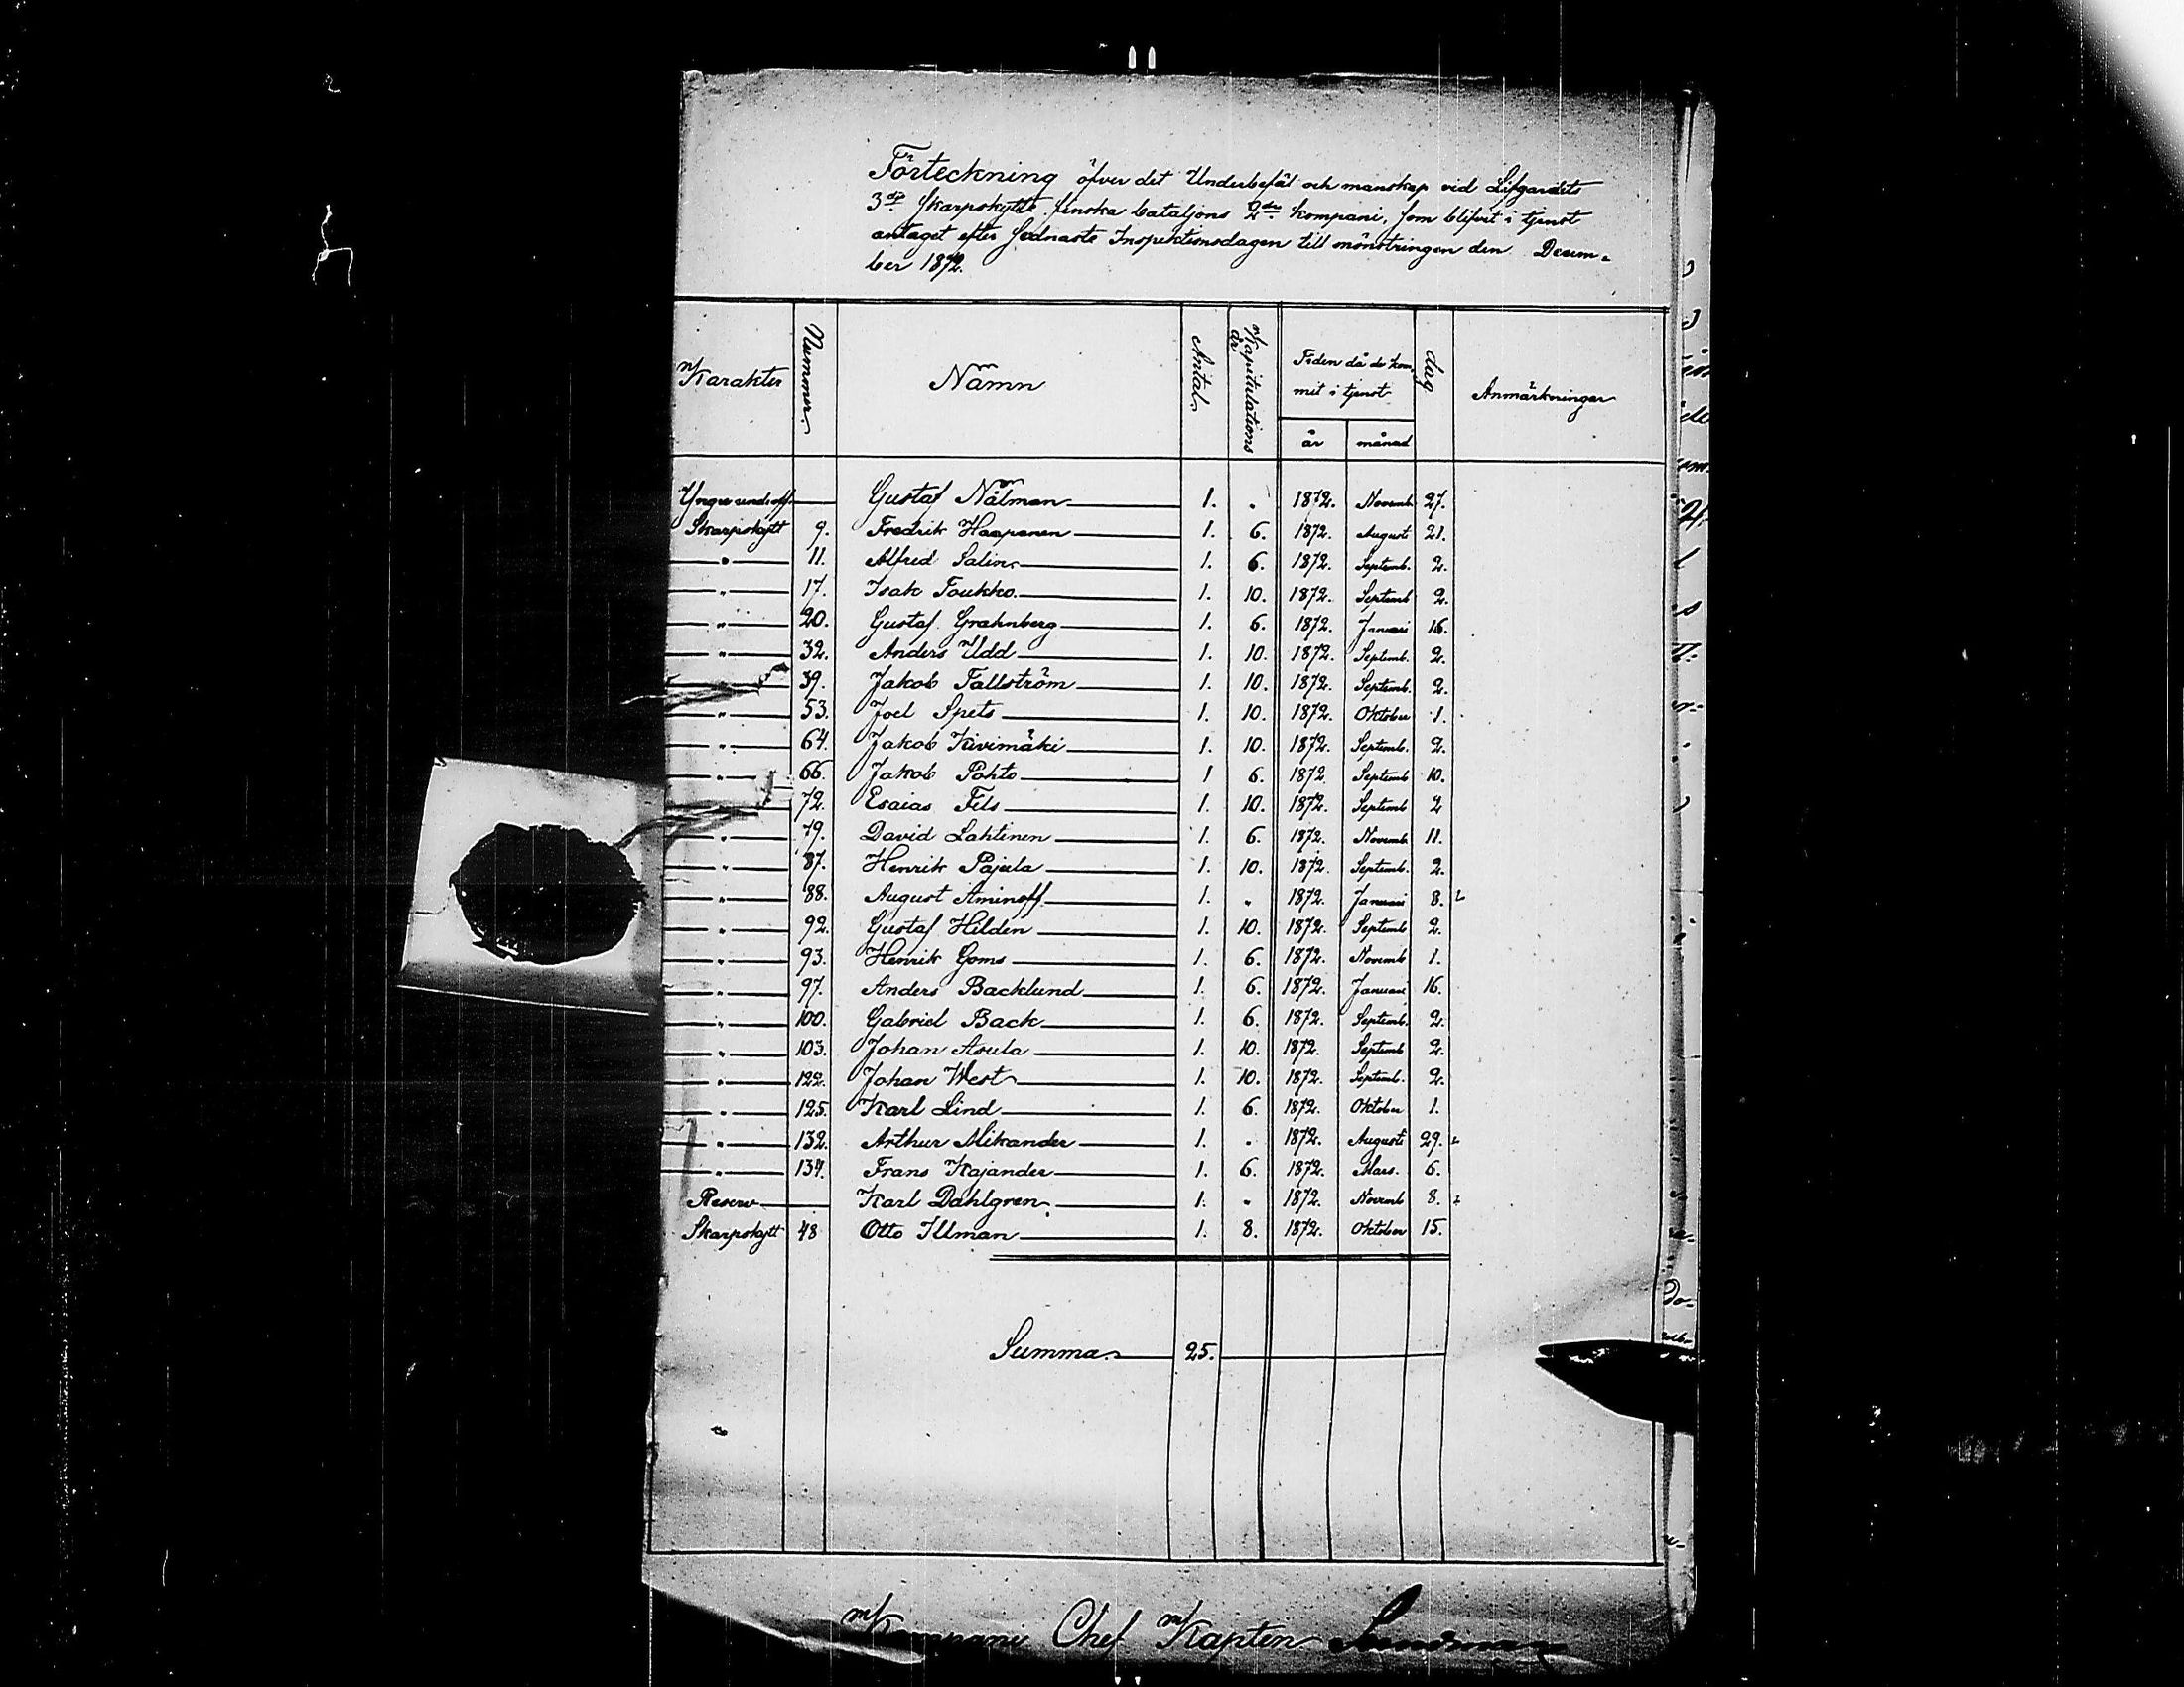 Förteckning öfver det Underbefäl och manskap vid Lifgardets
3dje Skarpskytte finska bataljons 2dra kompani, som blifvit i tjenst
antaget efter sednaste Inspektionsdagen till mönstringen den Decem-
ber 1872.
Karakter Nummer. Namn Antal. Kapitulations år Tiden då de kom- mit i tjenst år månad dag Anmärkningar
Yngre und.off. Gustaf Nälman 1. " 1872. Novemb. 27.
Skarpskytt 9. Fredrik Haapanen 1. 6. 1872. Augusti 21.
" 11. Alfred Salin 1. 6. 1872. Septemb. 2.
" 17. Isak Toukko. 1. 10. 1872. Septemb 2.
" 20. Gustaf Grahnberg 1. 6. 1872. Januari 16.
" 32. Anders Udd 1. 10. 1872. Septemb. 2.
" 39. Jakob Tallström 1. 10. 1872. Septemb. 2.
" 53. Joel Spets 1. 10. 1872. Oktober 1.
" 64. Jakob Kivimäki 1. 10. 1872. Septemb. 2.
" 66. Jakob Pohto 1 6. 1872. Septemb 10.
" 72. Esaias Fils 1. 10. 1872. Septemb 2
" 79. David Lahtinen 1. 6. 1872. Novemb. 11.
" 87. Henrik Pajula 1. 10. 1872. Septemb. 2.
" 88. August Aminoff 1. " 1872. Januari 8.
" 92. Gustaf Hilden 1. 10. 1872. Septemb 2.
" 93. Henrik Goms 1. 6. 1872. Novemb 1.
" 97. Anders Backlund 1. 6. 1872. Januari 16.
" 100. Gabriel Back 1. 6. 1872. Septemb. 2.
" 103. Johan Asula 1. 10. 1872. Septemb 2.
" 122. Johan West 1. 10. 1872. Septemb. 2.
" 125. Karl Lind 1. 6. 1872. Oktober 1.
" 132. Arthur Mikander 1. " 1872. Augusti 29.
" 134. Frans Kajander 1. 6. 1872. Mars. 6.
Reserv Karl Dahlgren. 1. " 1872. Novemb 8.
Skarpskytt 48 Otto Illman 1. 8. 1872. Oktober 15.
Summa 25.
Kompani Chef Kapten Sundman